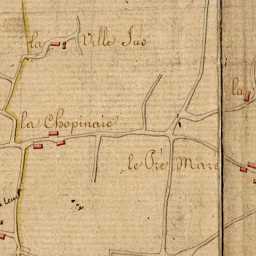 la Ville Juo
la
la Chopinaie
le Pré Mare